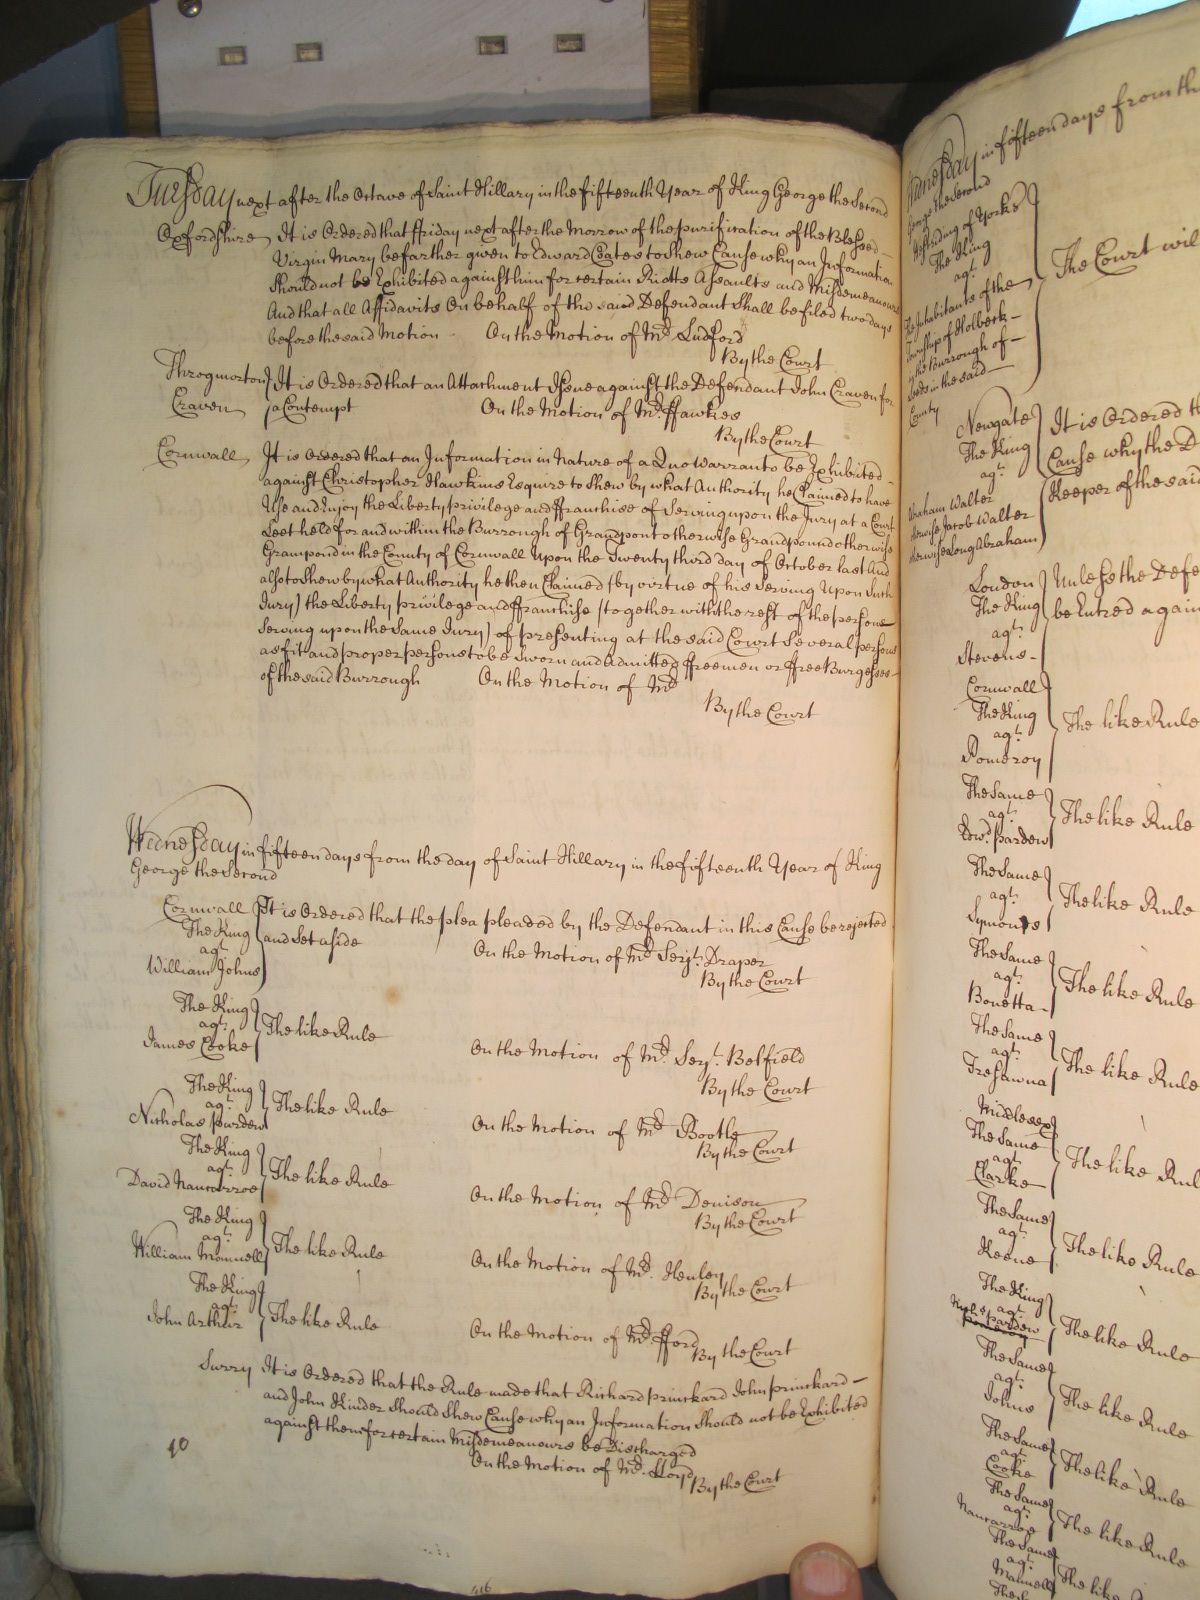 Tuesday next after the Octave of Saint Hillary in the fifteenth Year of King George the Second
Oxfordshire It is Ordered that ffriday next after the Morrow of the purification of the Blessed
Virgin Mary be farther given to Edward Coates to shew Cause why an Information
should not be Exhibited against him for certain Riotts Assaults and Misdemeanours
And that all Affidavits On behalf of the said Defendant shall be filed two days
before the said Motion On the Motion of Mr. Ludford
By the Court
Throgmorton
Craven
It is Ordered that an Attachment Issue against the Defendant John Craven for
a Contempt On the Motion of Mr. ffawkes
By the Court
Cornwall It is Ordered that an Information in Nature of a Quo Warranto be Exhibited
against Christopher Hawkins Esquire to shew by what Authority he Claimed to have
Use and Enjoy the Liberty privilege and ffranchise of Serving upon the Jury at a Court
Leet held for and within the Burrough of Grandpont otherwise Grandpound otherwise
Grampond in the County of Cornwall Upon the Twenty third day of October last And
also to shew by what Authority he then Claimed (by virtue of his Serving Upon Such
Jury) the Liberty privilege and ffranchise (together with the rest of the persons
Serving upon the Same Jury) of presenting at the said Court Several persons
as fit and proper persons to be Sworn and Admitted ffreemen or ffree Burgesses
of the said Burrough On the Motion of Mr.
By the Court
Wednesday in fifteen days from the day of Saint Hillary in the fifteenth Year of King
George the Second
Cornwall
The King
agt.
William Johns
It is Ordered that the plea pleaded by the Defendant in this Cause be rejected
and Set aside On the Motion of Mr. Serjt. Draper
By the Court
The King
agt.
James Cooke
The like Rule On the Motion of Mr. Serjt. Belfield
By the Court
The King
agt.
Nicholas Pardew
The like Rule On the Motion of Mr. Bootle
By the Court
The King
agt.
David Nancarroe
The like Rule On the Motion of Mr. Denison
By the Court
The King
agt.
William Mannell
The like Rule On the Motion of Mr. Henley
By the Court
The King
agt.
John Arthur
The like Rule On the Motion of Mr. fford
By the Court
Surry It is Ordered that the Rule made that Richard Princkard John Princkard
and John Kinder Should Shew Cause why an Information Should not be Exhibited
against them for certain Misdemeanours be Discharged
On the Motion of Mr. Lloyd
By the Court
40
416
Wednesday in fifteen days from th
George the Second
Westriding of Yorks
The King
agt.
The Inhabitants of the
Township of Holbeck
in the Burrough of
Leeds in the said
County
The Court will
Newgate
The King
agt.
Abraham Walter
otherwise Jacob Walter
otherwise Long Abraham
It is Ordered th
Cause why the D
Keeper of the said
London
The King
agt.
Stevens
Unless the Defe
be Entred again
Cornwall
The King
agt.
Pomeroy
The like Rule
The Same
agt.
Edwd. Pardew
The like Rule
The Same
agt.
Symons
The like Rule
The Same
agt.
Bonetta
The like Rule
The Same
agt.
Tresawna
The like Rule
Middlesex
The Same
agt.
Clarke
The like Rul
The Same
agt.
Keene
The like Rule
The King
agt.
Nichs. Pardew
The like Rule
The Same
agt.
Johns
The like Rule
The Same
agt.
Cooke
The like Rule
The Same
agt.
Nancarroe
The like Rule
The Same
agt.
Mannell
The like